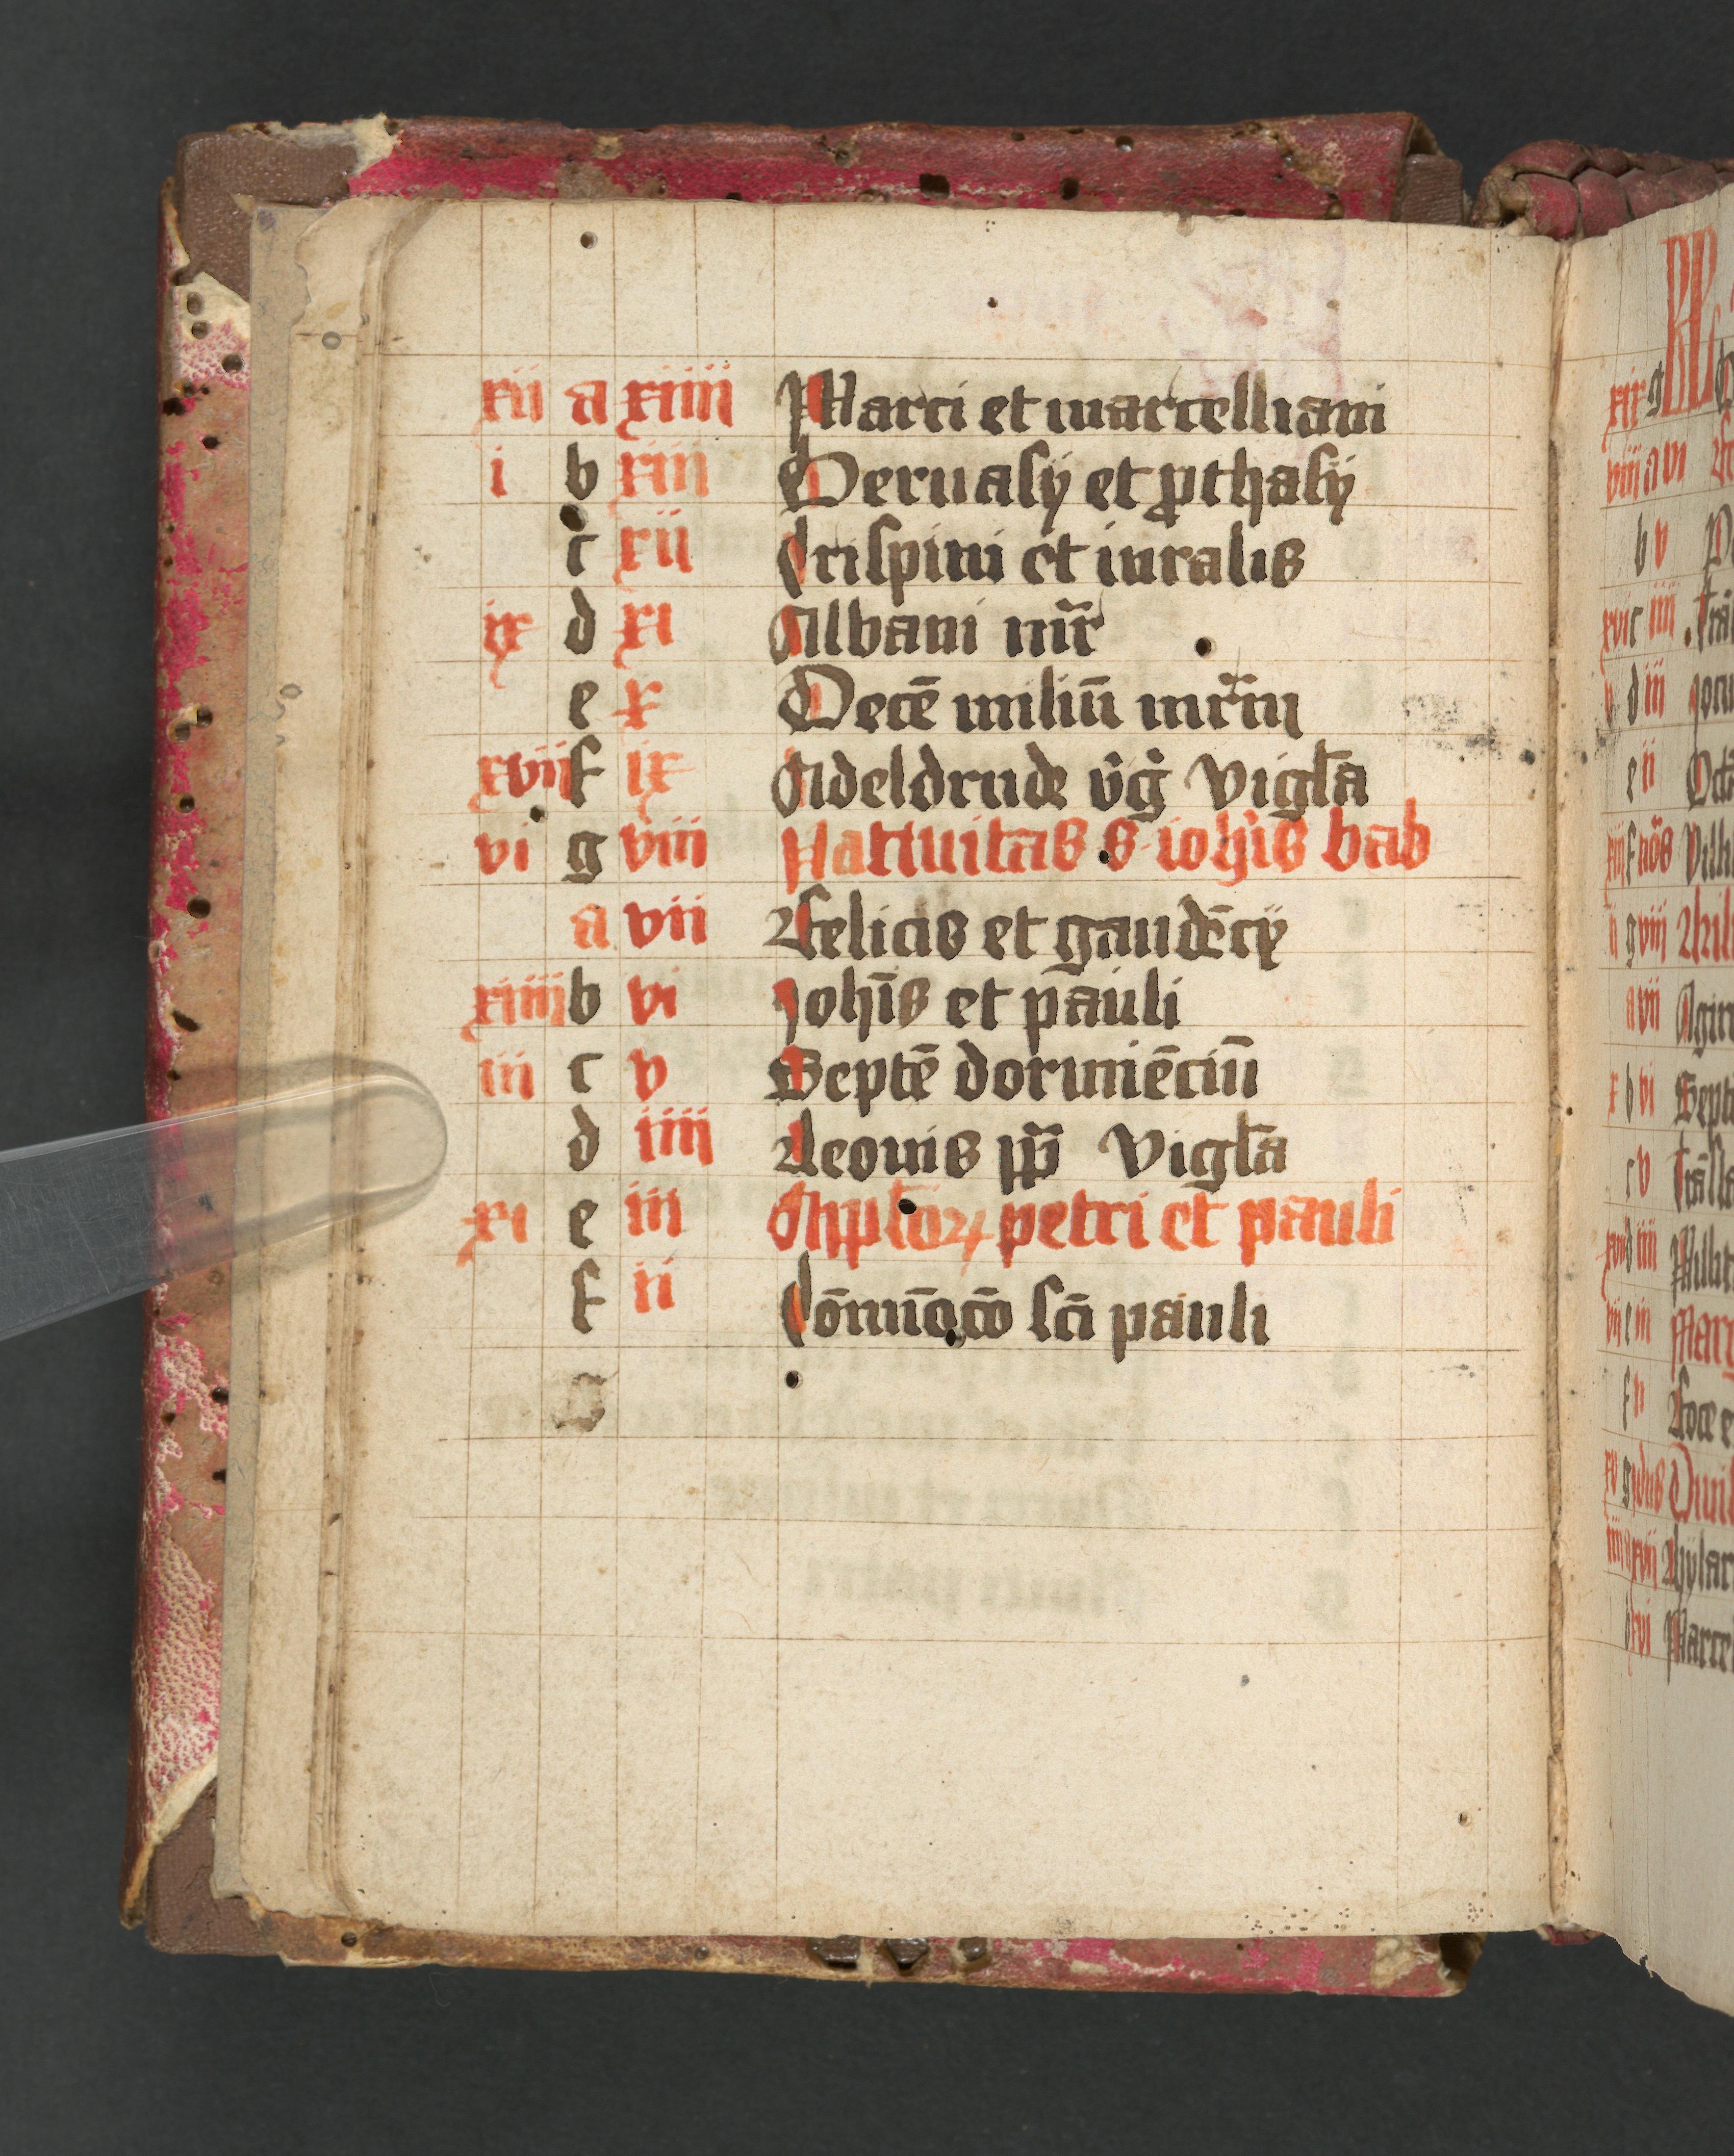 xii a xiiii Marci et marcelliani
i b xiii Geruasij et ꝓthasij
c xii Crispini et iuralis
ix d xi Albani mr̄
e x Decē miliū mr̄m
xvii f ix Adeldrude v̄ḡ vigl̄a
vi g viii Natiuitas s ioh̄is bab
a vii Felicis et gaudēcij
xiiii b vi Joh̄is et pauli
iii c v Septē dormiēciū
d iiii Leonis pp̄ vigl̄a
xi e iii Apl̄oꝝ petri et pauli
f ii Cōmōcō sc̄i pauli
KL
xix g
viii a vi
b v
xvi c iiii
v d iii
e ii
xiii f nōs
ii g viii
a vii
x b vi
c v
xviii d iiii
vii e iii
f ii
xv g idus
iiii a xvii
b xvi